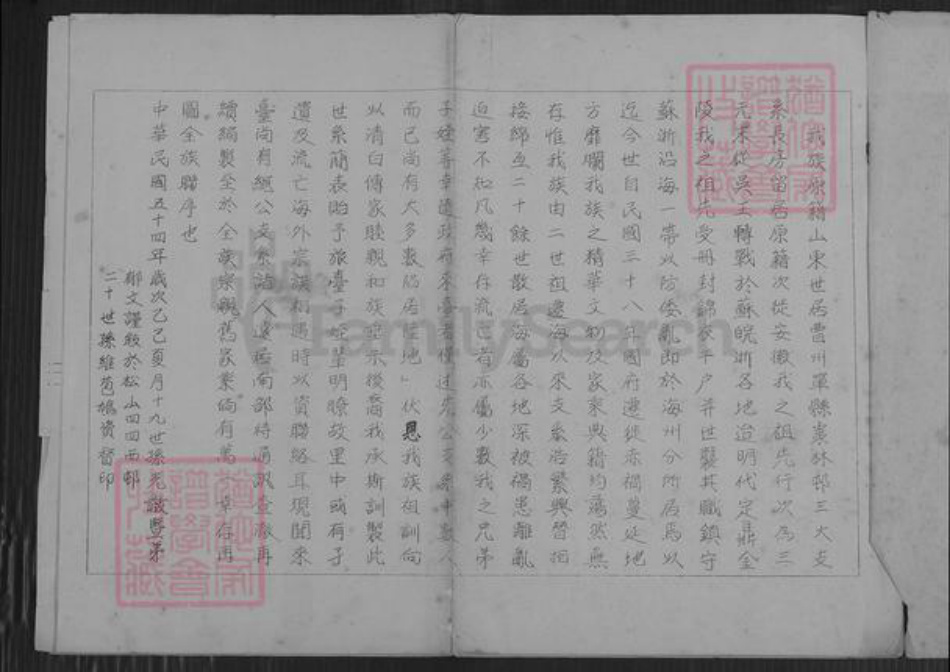 我族原籍山東世居曹州單縣棗林邨三大支
系長房留居原籍次徙安徽我之祖先行次為三
元末從吳王轉戰於蘇皖浙各地迨明代定鼎金
陵我之祖先受冊封錦衣千户并世襲其職鎮守
蘇浙沿海一帶以防倭亂即於海州分所居焉以
迄今世自民國三十八年國府遷徙赤禍蔓延地
方靡爛我族之精華文物及家乘典籍均蕩然無
存惟我族由二世祖遷海以來支系浩繁興替相
接綿亙二十餘世散居海屬各地深被禍患離亂
迫害不知凡幾幸存流亡者亦屬少數我之兄弟
子姪等幸遵政府來臺者僅述先公支系中數人
而已尚有大多數陷居陸地」伏思我族祖訓向
以清白傳家睦親和族垂示後裔我承斯訓製此
世系簡表貽予旅臺子姪輩明瞭故里中或有子
遺及流亡海外宗族相遇時以資聯絡耳現聞來
臺尚有繩公支系諸人遠居南部待通訊查徵再
續編製至於全族宗親舊家業倘有萬一幸存再
圖全族聯序也
中華民國五十四年歲次乙巳夏月十九世孫克誠暨弟
鄰文謹敘於松山四四西邨
二十世孫維苞鳩資督印
FamilySearch